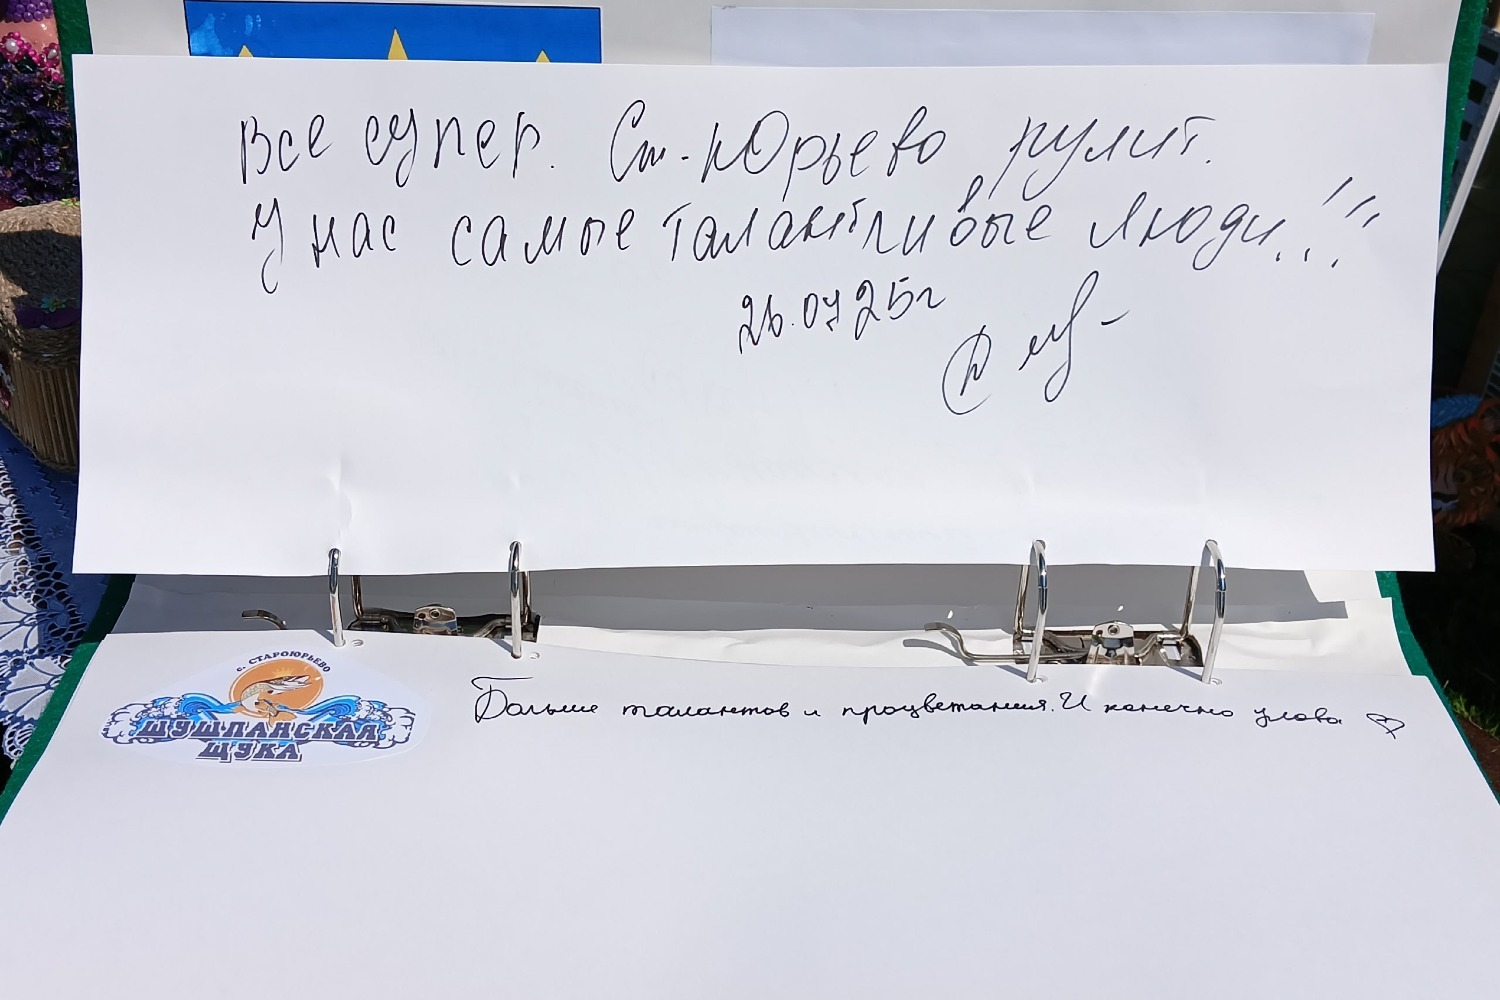 Все супер. Ст-Юрьево рулит.
У нас самые талантливые люди!!!
26.07 25г
с. СТАРОЮРЬЕВО
ШУШПАНСКАЯ
ЩУКА
Больше талантов и процветания. И конечно улова